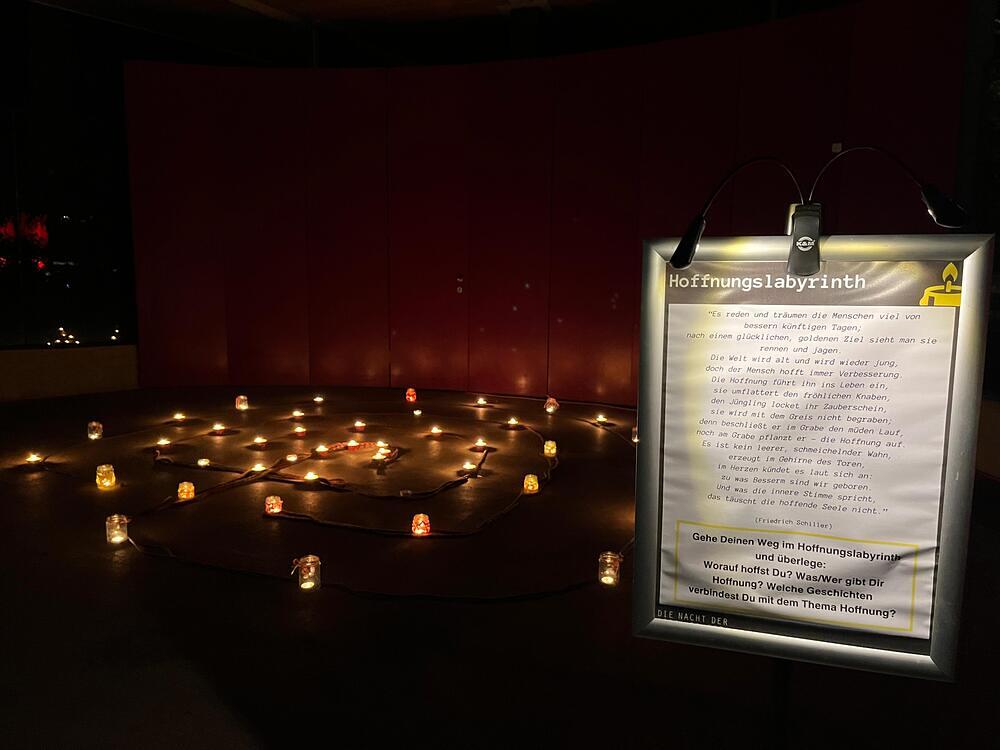 K&M
Hoffnungslabyrinth
"Es reden und träumen die Menschen viel von
bessern künftigen Tagen;
nach einem glücklichen, goldenen Ziel sieht man sie
rennen und jagen.
Die Welt wird alt und wird wieder jung,
doch der Mensch hofft immer Verbesserung.
Die Hoffnung führt ihn ins Leben ein,
sie umflattert den fröhlichen Knaben,
den Jüngling locket ihr Zauberschein,
sie wird mit dem Greis nicht begraben;
denn beschließt er im Grabe den müden Lauf,
noch am Grabe pflanzt er – die Hoffnung auf.
Es ist kein leerer, schmeichelnder Wahn,
erzeugt im Gehirne des Toren,
im Herzen kündet es laut sich an:
zu was Besserm sind wir geboren.
Und was die innere Stimme spricht,
das täuscht die hoffende Seele nicht."
(Friedrich Schiller)
Gehe Deinen Weg im Hoffnungslabyrinth
und überlege:
Worauf hoffst Du? Was/Wer gibt Dir
Hoffnung? Welche Geschichten
verbindest Du mit dem Thema Hoffnung?
DIE NACHT DER